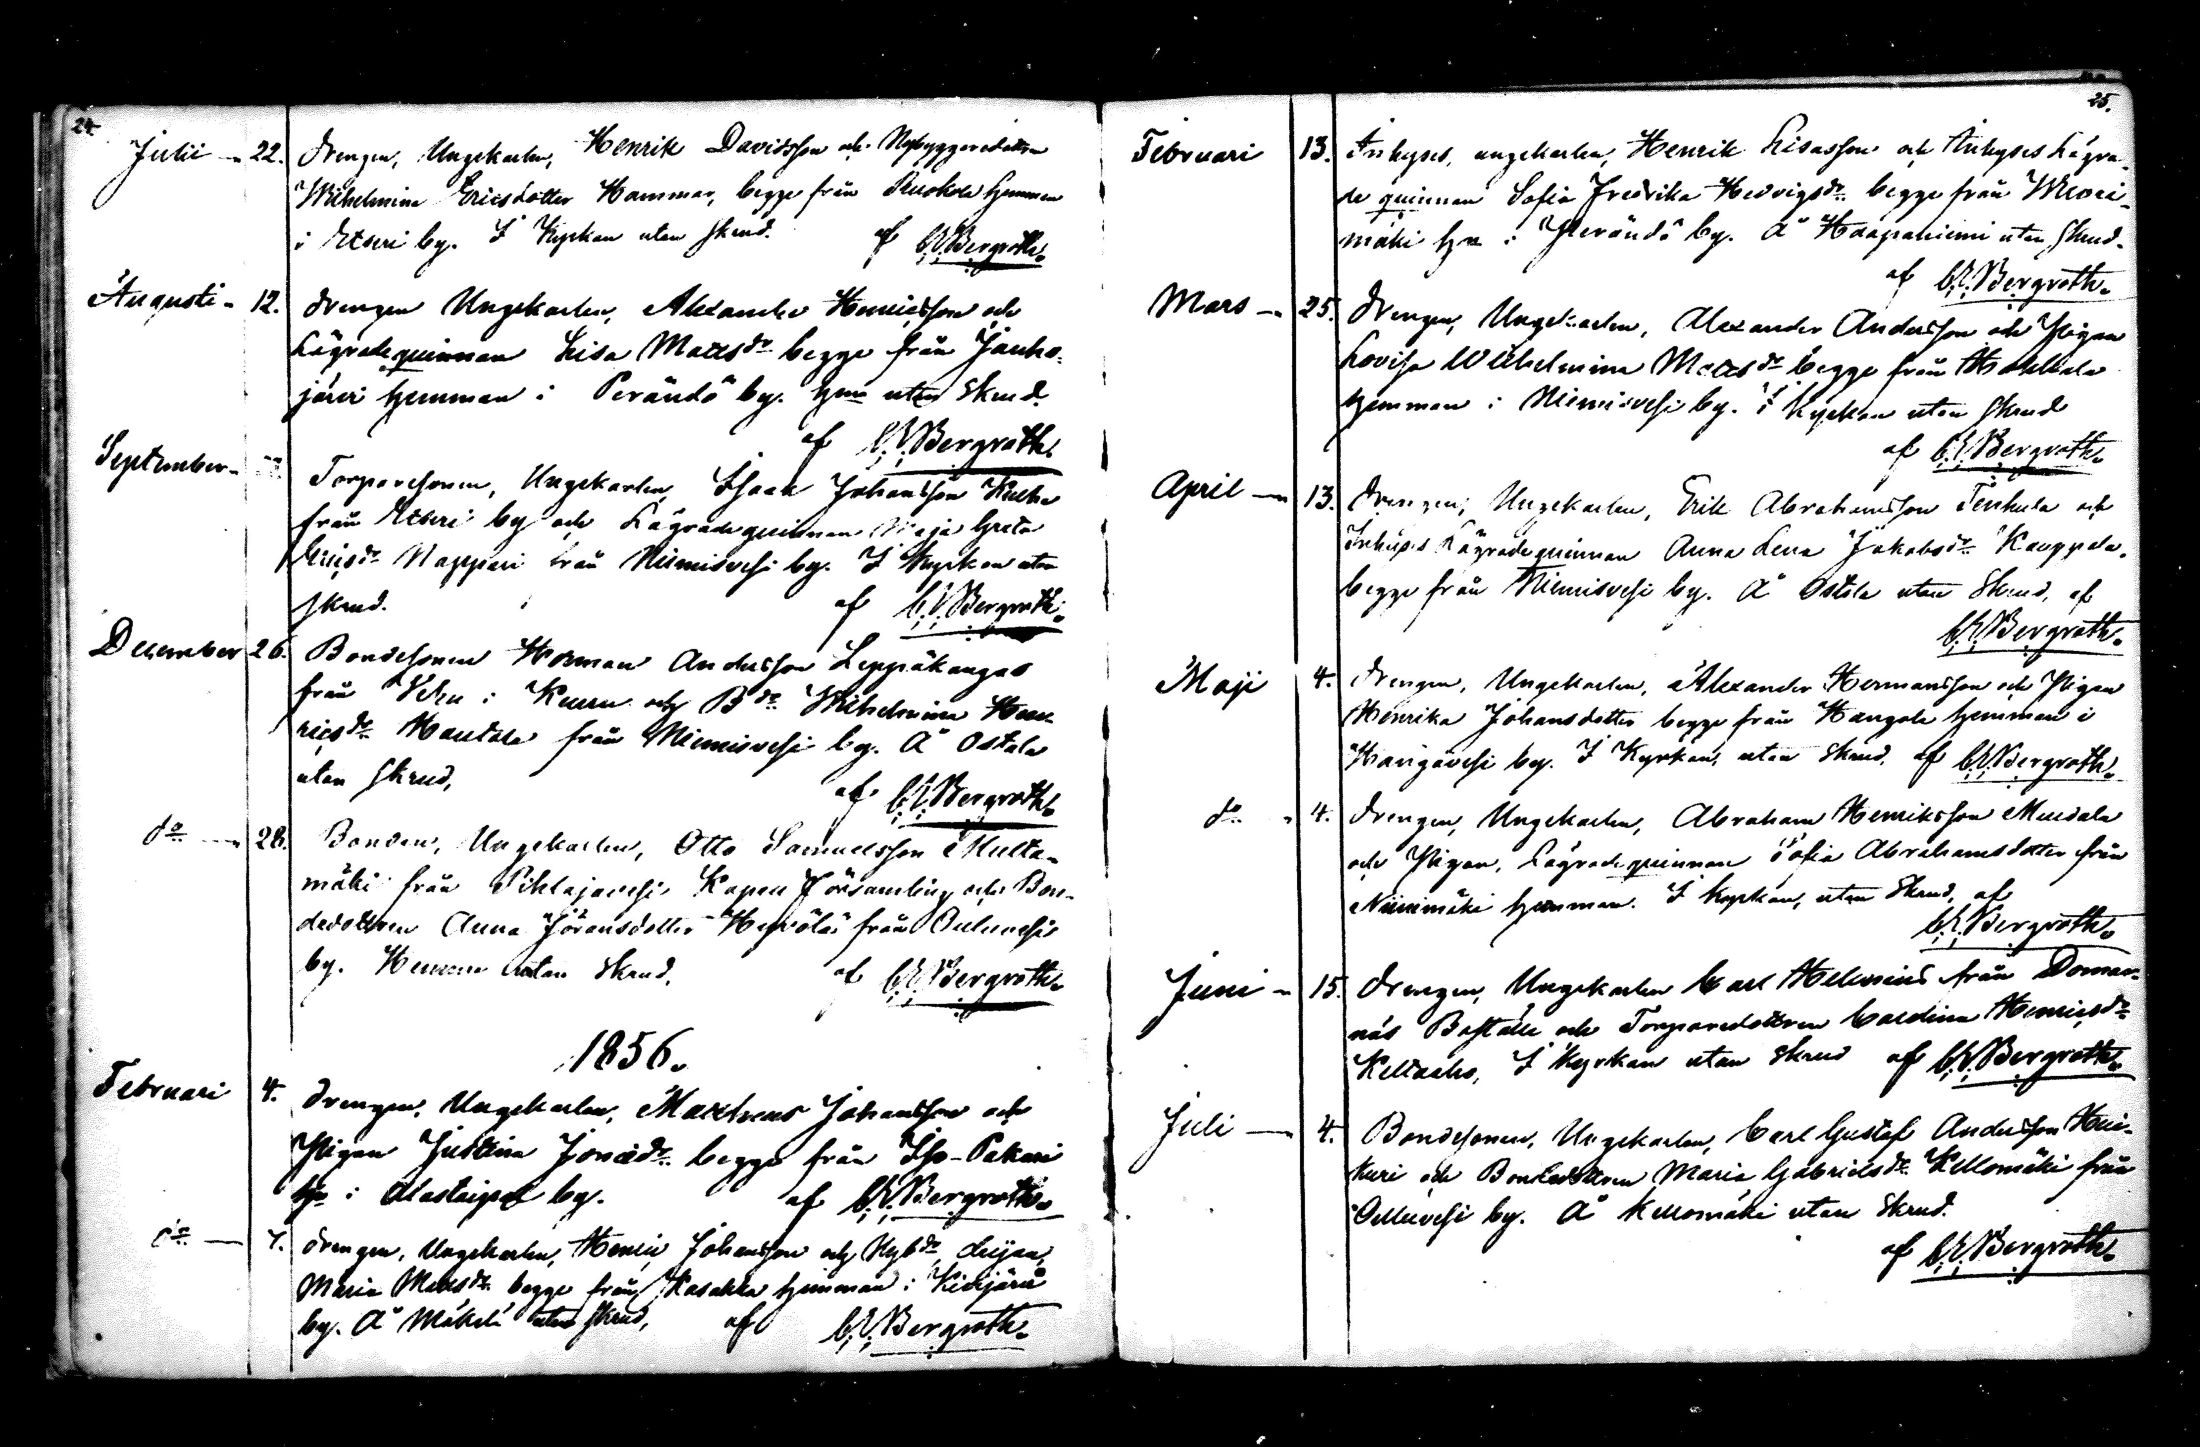 24.
Julii - 22. Drengen, Ungekarlen, Henrik Davidsson och Nybyggaredottren
Wilhelmina Ericsdotter Hammar, begge från Ruokola hemman
i Etseri by. I Kyrkan utan skrud. af C.E.Bergroth.
Augusti - 12. Drengen Ungekarlen, Alexander Henricsson och
Lägradequinnan Lisa Mattsdr begge från Jauho-
järvi hemman i Perändö by. hem utan skrud.
af C.E.Bergroth.
September - Torparesonen, Ungekarlen, Isaak Johansson
från Etseri by och Lägradequinnan Maja Greta
Ericsdr Nappari från Niemisvesi by. I Kyrkan utan
skrud. af C.E.Bergroth.
December 26. Bondesonen Herman Andersson Leppäkangas
från i och Bdr Wilhelmina Hen-
ricsdr Hautala från Niemisvesi by. Å Ostola
utan skrud. af C.E.Bergroth.
do - 28. Bonden, Ungekarlen, Otto Samuelsson Multa-
mäki från Pihlajavesi Kapell Församling och Bon-
dedottren Anna Jöransdotter från Oulunvesi
by. Hemma utan skrud. af C.E.Bergroth.
1856.
Februari 4. Drengen, Ungekarlen, Mattheus Johansson och
Pigan Justina Jonaedr begge från Iso-Pakari
hn i Alastaipal by. af C.E.Bergroth.
do - Drengen, Ungekarlen, Henric Johansson och
Maria Mattsdr begge från Kasakka hemman i
by. Å Mäkelä utan skrud, af C.E.Bergroth.
25.
Februari 13. Inhyses, ungekarlen, Henrik Lisasson och Inhyses Lägra-
de quinnan Sofia Fredrika Hedvigsdr begge från
mäki hn i Perändö by. Å Haapaniemi utan skrud.
af C.E.Bergroth.
Mars - 25. Drengen, Ungekarlen, Alexander Andersson och Pigan
Lovisa Wilhelmina Mattsdr begge från Hakkala
hemman i Niemisvesi by. i Kyrkan utan skrud
af C.E.Bergroth.
April - 13. Drengen, Ungekarlen, Erik Abrahamsson och
Inhyses Lägradequinnan Anna Lena Jakobsdr Kauppala,
begge från Niemisvesi by. Å Ostola utan skrud, af
C.E.Bergroth.
Maji 4. Drengen, Ungekarlen, Alexander Hermansson och Pigan
Henrika Johansdotter begge från Hangola hemman i
by. I Kyrkan, utan skrud, af C.E.Bergroth.
do - 4. Drengen, Ungekarlen, Abraham Henriksson
och Pigan, Lägradequinnan Sofia Abrahamsdotter från
Niinimäki hemman. I Kyrkan, utan skrud, af
C.E.Bergroth.
Juni - 15. Drengen, Ungekarlen Carl Hellenius från Domar-
näs Boställe och Torparedottren Carolina Henricsdr
Keltaaho, I Kyrkan utan skrud af C.E.Bergroth.
Juli - 4. Bondesonen, Ungekarlen, Carl Gustaf Andersson Hei-
kuri och Bondedottren Maria Gabrielsdr Kellomäki från
by. Å Kellomäki utan skrud.
af C.E.Bergroth.